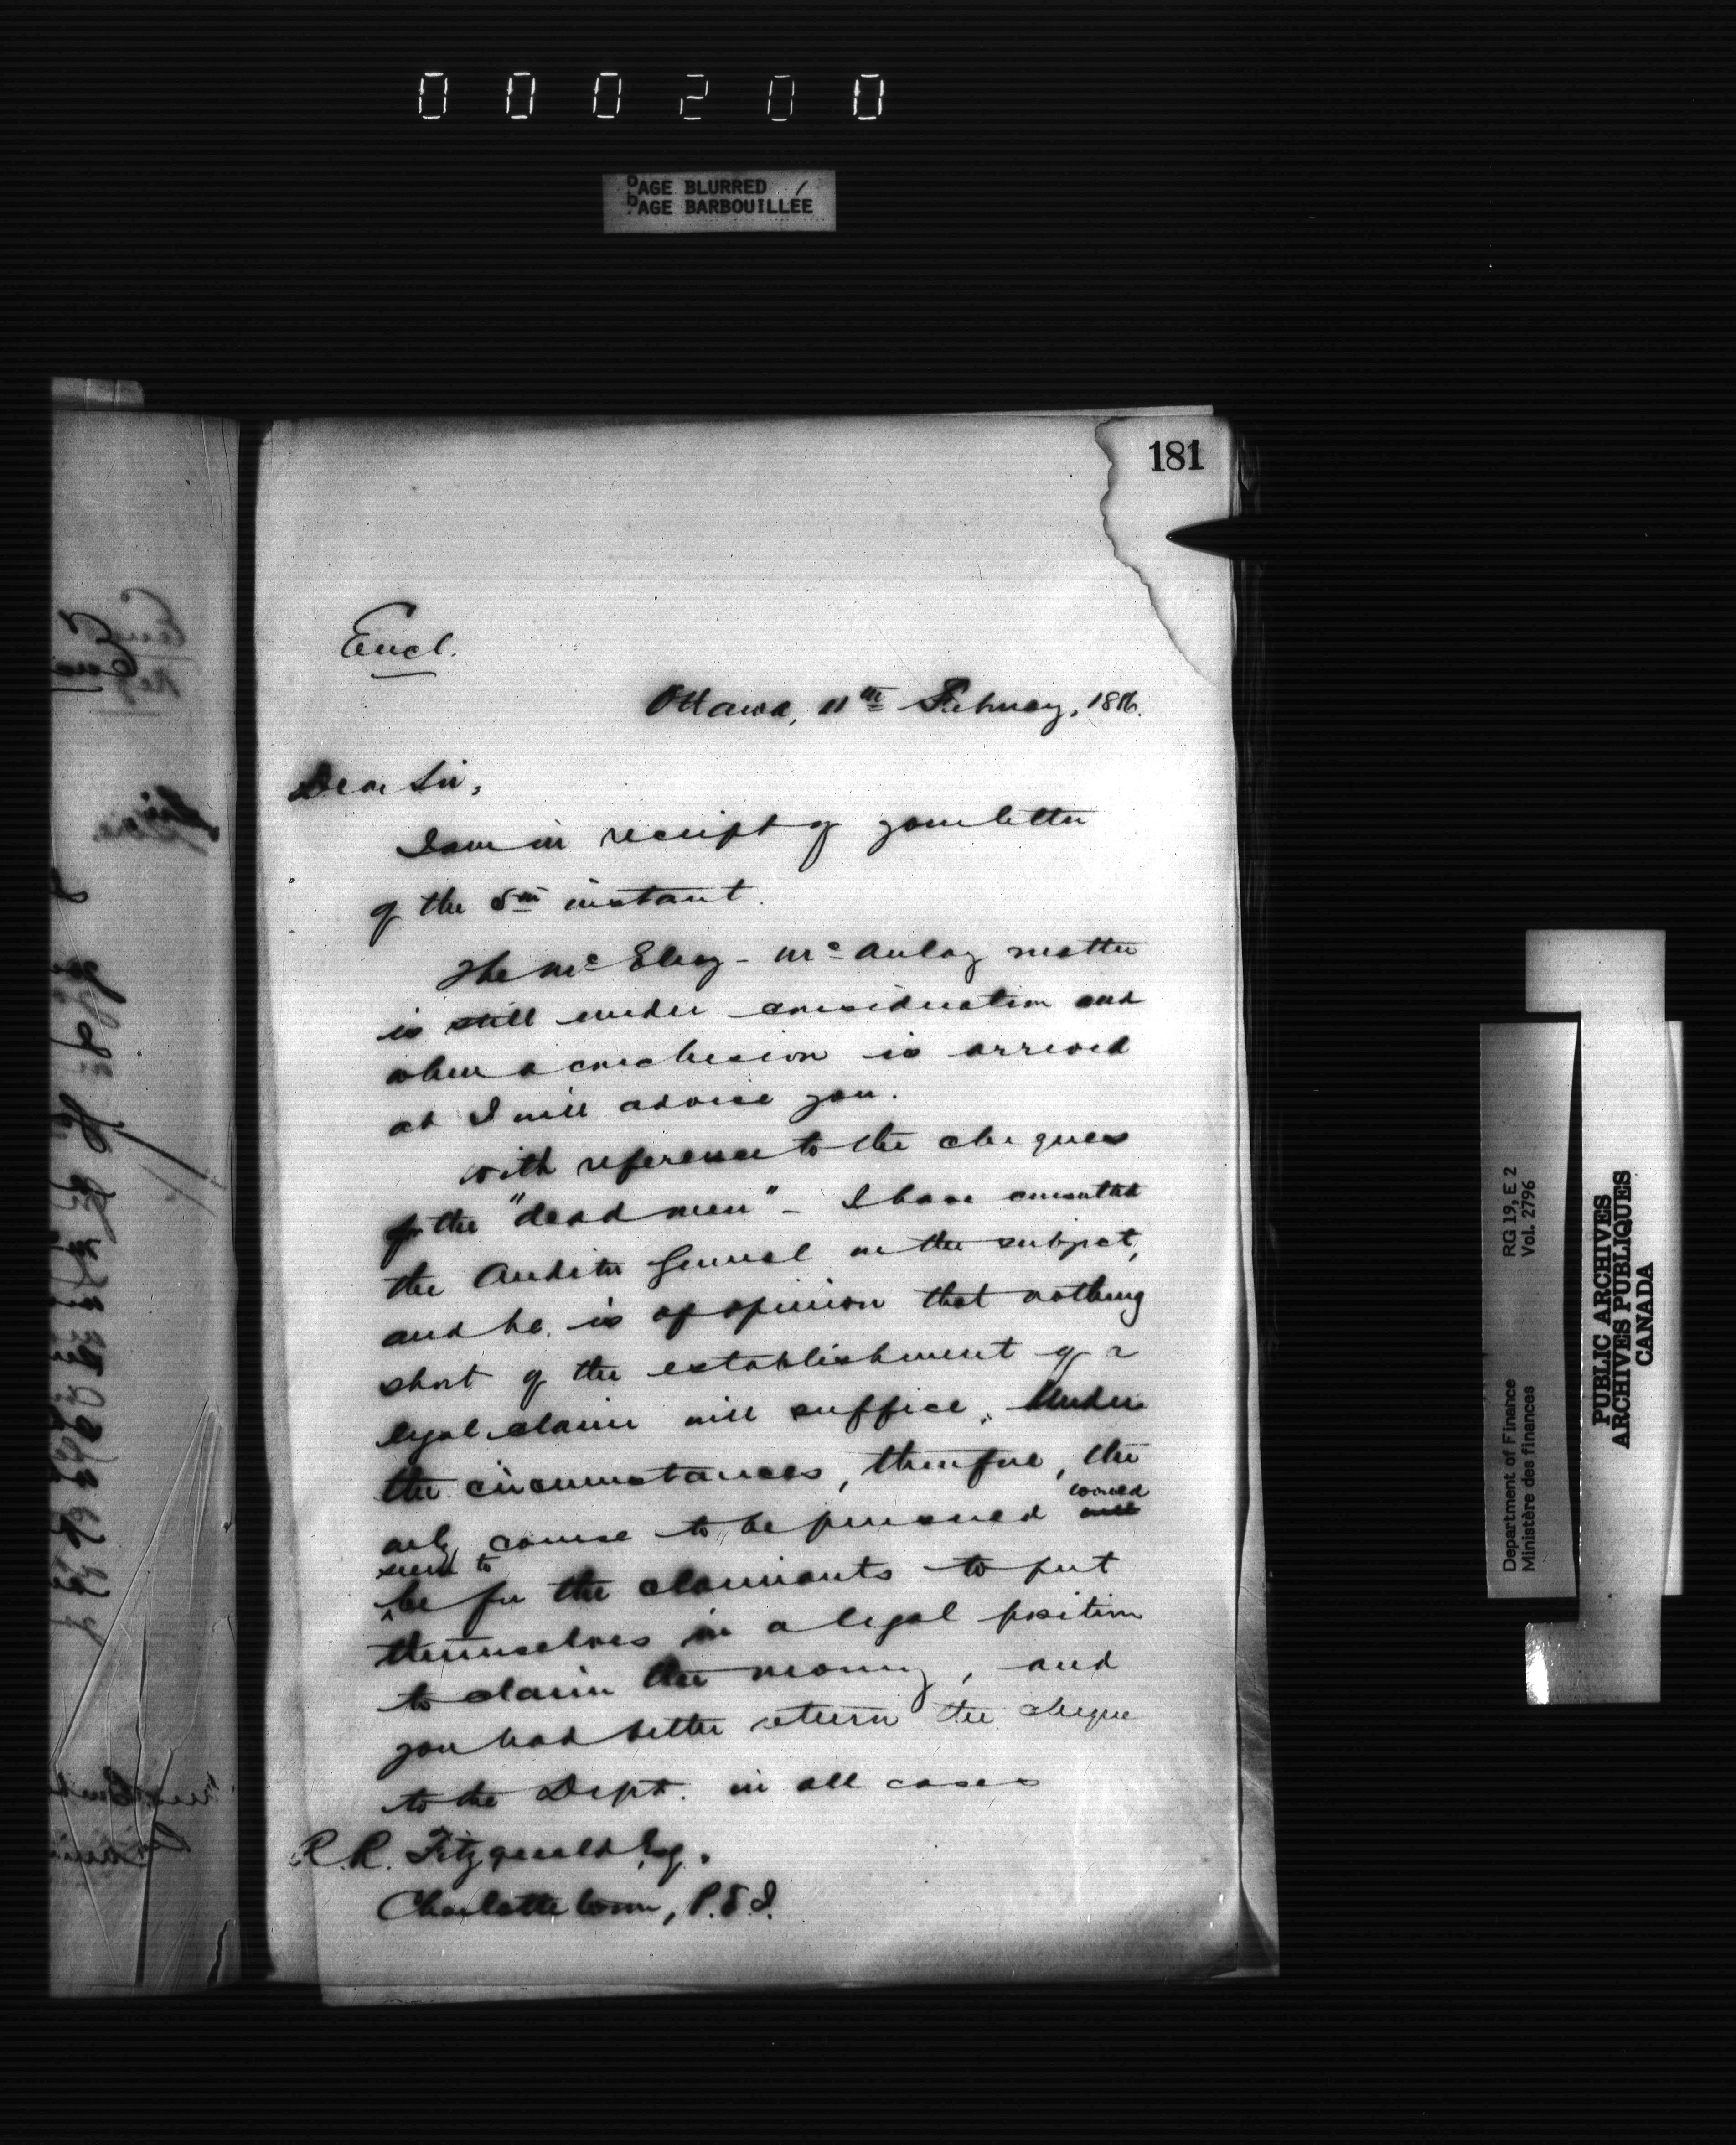 000200
PAGE BLURRED
PAGE BARBOUILLÉE
181
Encl.
Ottawa, 11th February, 1886.
Dear Sir,
I am in receipt of your letter
of the 5th instant.
The Mc Elroy - Mc Aulay matter
is still under consideration and
when a conclusion is arrived
at I will advise you.
With reference to the cheques
for the "dead men" - I have consulted
the Auditor General on the subject,
and he is of opinion that nothing
short of the establishment of a
legal claim will suffice. Under
the circumstances, therefore, the
only course to be pursued would
seem to
be for the claimants to put
themselves in a legal position
to claim the money, and
you had better return the cheque
to the Dept. in all cases
R.R. Fitzgerald Esq.
Charlottetown, P.E.I.
Department of Finance RG 19, E 2
Ministère des finances Vol. 2796
PUBLIC ARCHIVES
ARCHIVES PUBLIQUES
CANADA